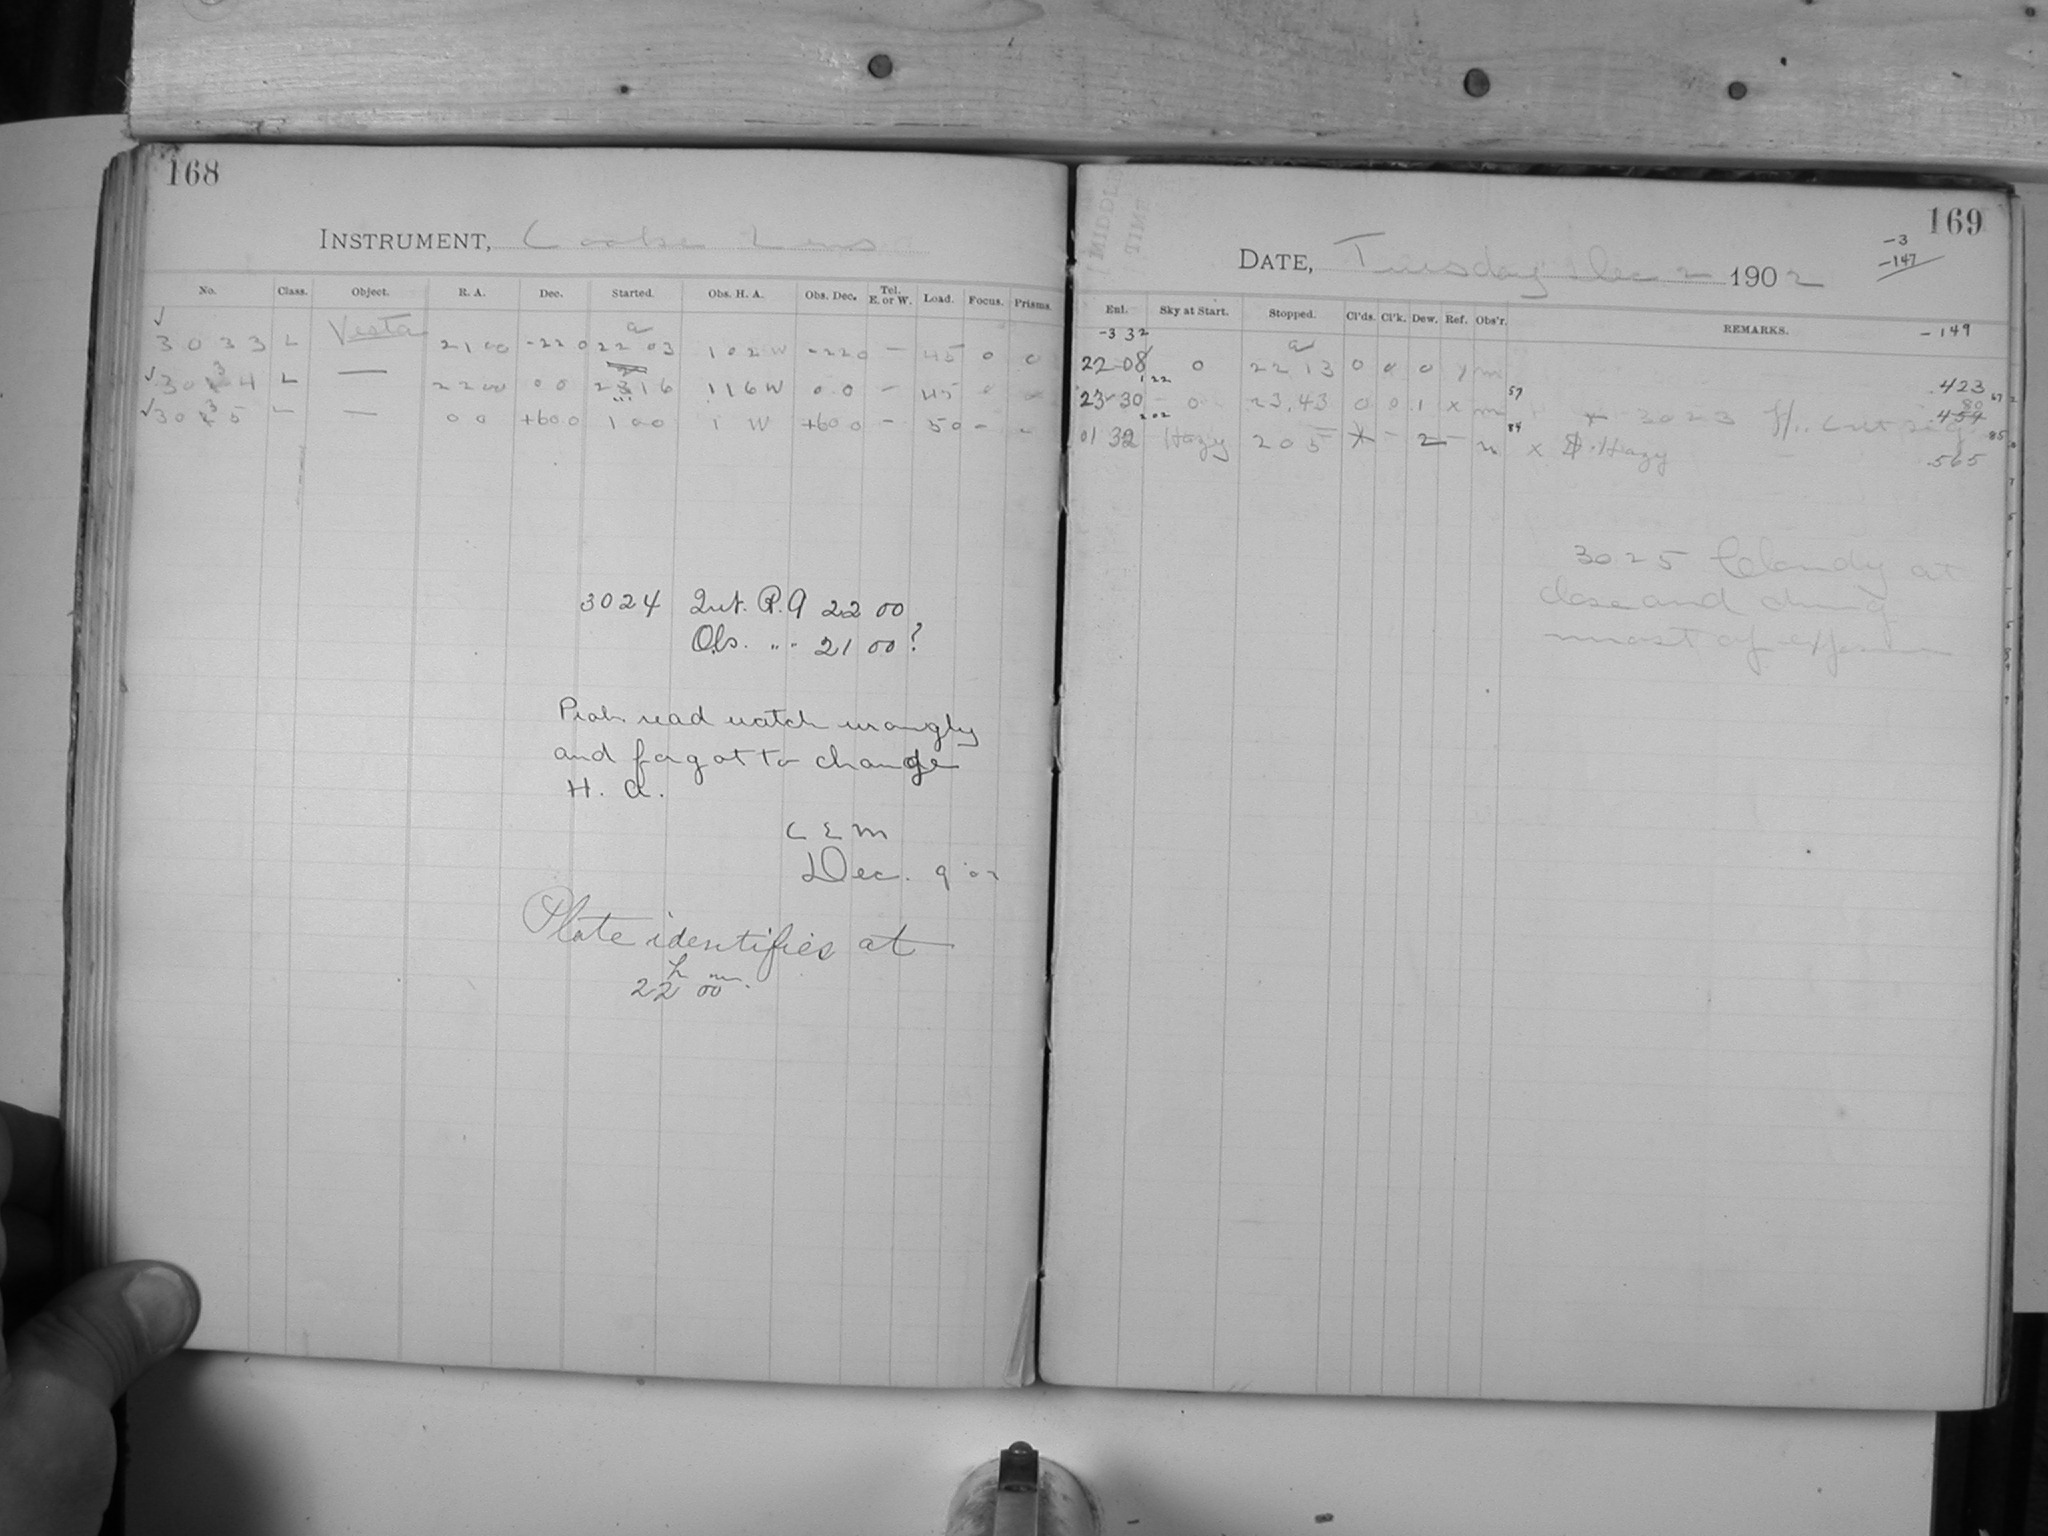 168
INSTRUMENT, Cooke Lens
No. Class. Object. R. A. Dec. Started. Obs. H. A. Obs. Dec. Tel. E. or W. Load. Focus. Prisms.
3033 L Vesta 21 00 -22 0 22 03 1 02 W -22 0 - 45 0 0
3034 L — 22 00 0 0 23 16 1 16 W 0.0 - 45
3035 L — 0 0 +60.0 1 00 1 W +60 0 - 50 - -
3024 Int. R.A 22 00
Obs. " " 21 00?
Prob. read watch wrongly
and forgot to change
H. A.
C E M
Dec. 9 '02
Plate identifies at
22h 00m.
169
-3
-147
DATE, Tuesday Dec 2 1902
Enl. Sky at Start. Stopped. Cl'ds. Cl'k. Dew. Ref. Obs'r. REMARKS.
-3 32 -149
22 08 0 22 13 0 0 0 y m
122 .423
23 30 0 23.43 0 0 1 x m 57 x 3023 80 67
202 454
01 32 Hazy 2 05 x - 2 - m 84 x Hazy 85
.565
3025 Cloudy at
close and during
most of exposure